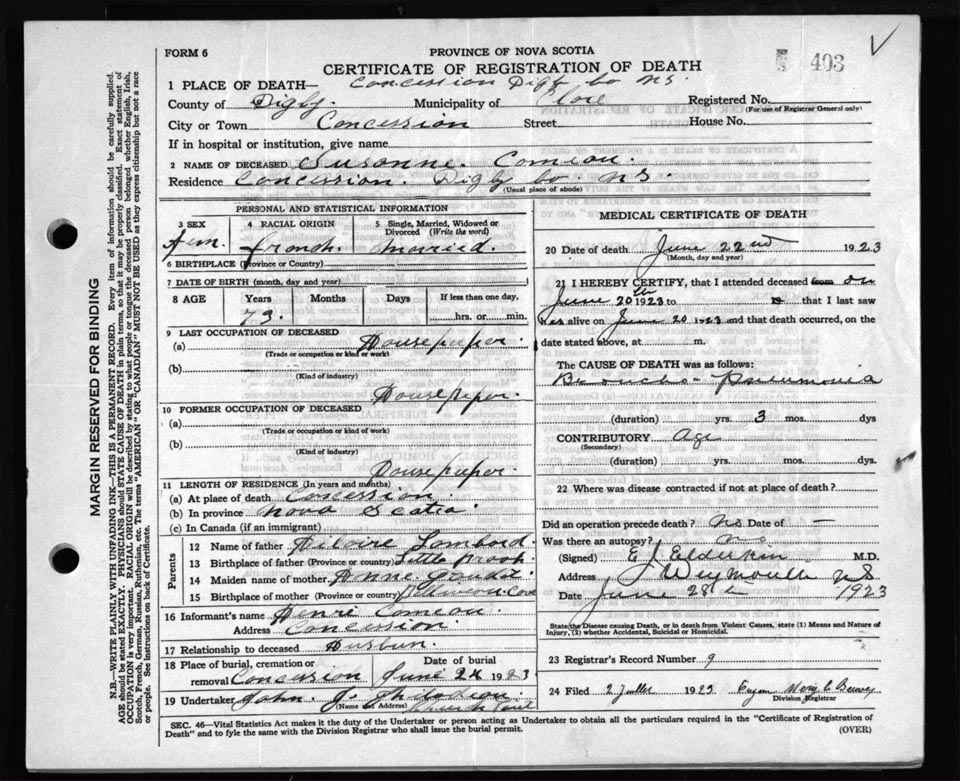 FORM 6
PROVINCE OF NOVA SCOTIA
403
CERTIFICATE OF REGISTRATION OF DEATH
1 PLACE OF DEATH— Concession Digby Co NS.
County of Digby Municipality of Clare Registered No.
(For use of Registrar General only)
City or Town Concession Street House No.
If in hospital or institution, give name
2 NAME OF DECEASED Susanne. Comeau.
Residence Concession. Digby Co. NS.
(Usual place of abode)
PERSONAL AND STATISTICAL INFORMATION
3 SEX 4 RACIAL ORIGIN 5 Single, Married, Widowed or Divorced (Write the word)
Fem. french. Maried.
6 BIRTHPLACE (Province or Country)
7 DATE OF BIRTH (month, day and year)
8 AGE Years Months Days If less than one day,
73. hrs. or min.
9 LAST OCCUPATION OF DECEASED
(a) Housekeeper.
(Trade or occupation or kind of work)
(b)
(Kind of industry)
Housekeper.
10 FORMER OCCUPATION OF DECEASED
(a)
(Trade or occupation or kind of work)
(b)
(Kind of industry)
Housekeeper.
11 LENGTH OF RESIDENCE (In years and months)
(a) At place of death Concession.
(b) In province Nova Scotia.
(c) In Canada (if an immigrant)
Parents
12 Name of father Lombard.
13 Birthplace of father (Province or country) Little Brook
14 Maiden name of mother Anne
15 Birthplace of mother (Province or country) Cove
16 Informant's name Henri Comeau
Address Concession.
17 Relationship to deceased
18 Place of burial, cremation or removal Concession Date of burial June 24 1923
19 Undertaker John. J.
(Name and Address) Church
MEDICAL CERTIFICATE OF DEATH
20 Date of death June 22nd 1923
(Month, day and year)
21 I HEREBY CERTIFY, that I attended deceased from on
June 20th 1923 to 19 that I last saw
her alive on June 20 1923 and that death occurred, on the
date stated above, at m.
The CAUSE OF DEATH was as follows:
Broncho-Pneumonia
(duration) yrs 3 mos. dys
CONTRIBUTORY Age
(Secondary)
(duration) yrs. mos. dys.
22 Where was disease contracted if not at place of death?
Did an operation precede death? No Date of —
Was there an autopsy? No
(Signed) E J Elderkin M.D.
Address Weymouth N.S.
Date June 28th 1923
State the Disease causing Death, or in death from Violent Causes, state (1) Means and Nature of
Injury, (2) whether Accidental, Suicidal or Homicidal.
23 Registrar's Record Number 9
24 Filed 2 Juillet 1923
Division Registrar
SEC. 46—Vital Statistics Act makes it the duty of the Undertaker or person acting as Undertaker to obtain all the particulars required in the "Certificate of Registration of
Death" and to fyle the same with the Division Registrar who shall issue the burial permit.
(OVER)
MARGIN RESERVED FOR BINDING
N.B.—WRITE PLAINLY WITH UNFADING INK—THIS IS A PERMANENT RECORD. Every item of information should be carefully supplied.
AGE should be stated EXACTLY. PHYSICIANS should STATE CAUSE OF DEATH in plain terms, so that it may be properly classified. Exact statement of
OCCUPATION is very important. RACIAL ORIGIN will be described by stating to what people or tongue the deceased person belonged whether English, Irish,
Scotch, French, German, Russian, Ruthenian, etc. The terms "AMERICAN" OR "CANADIAN" MUST NOT BE USED as they express citizenship but not a race
or people. See instructions on back of Certificate.